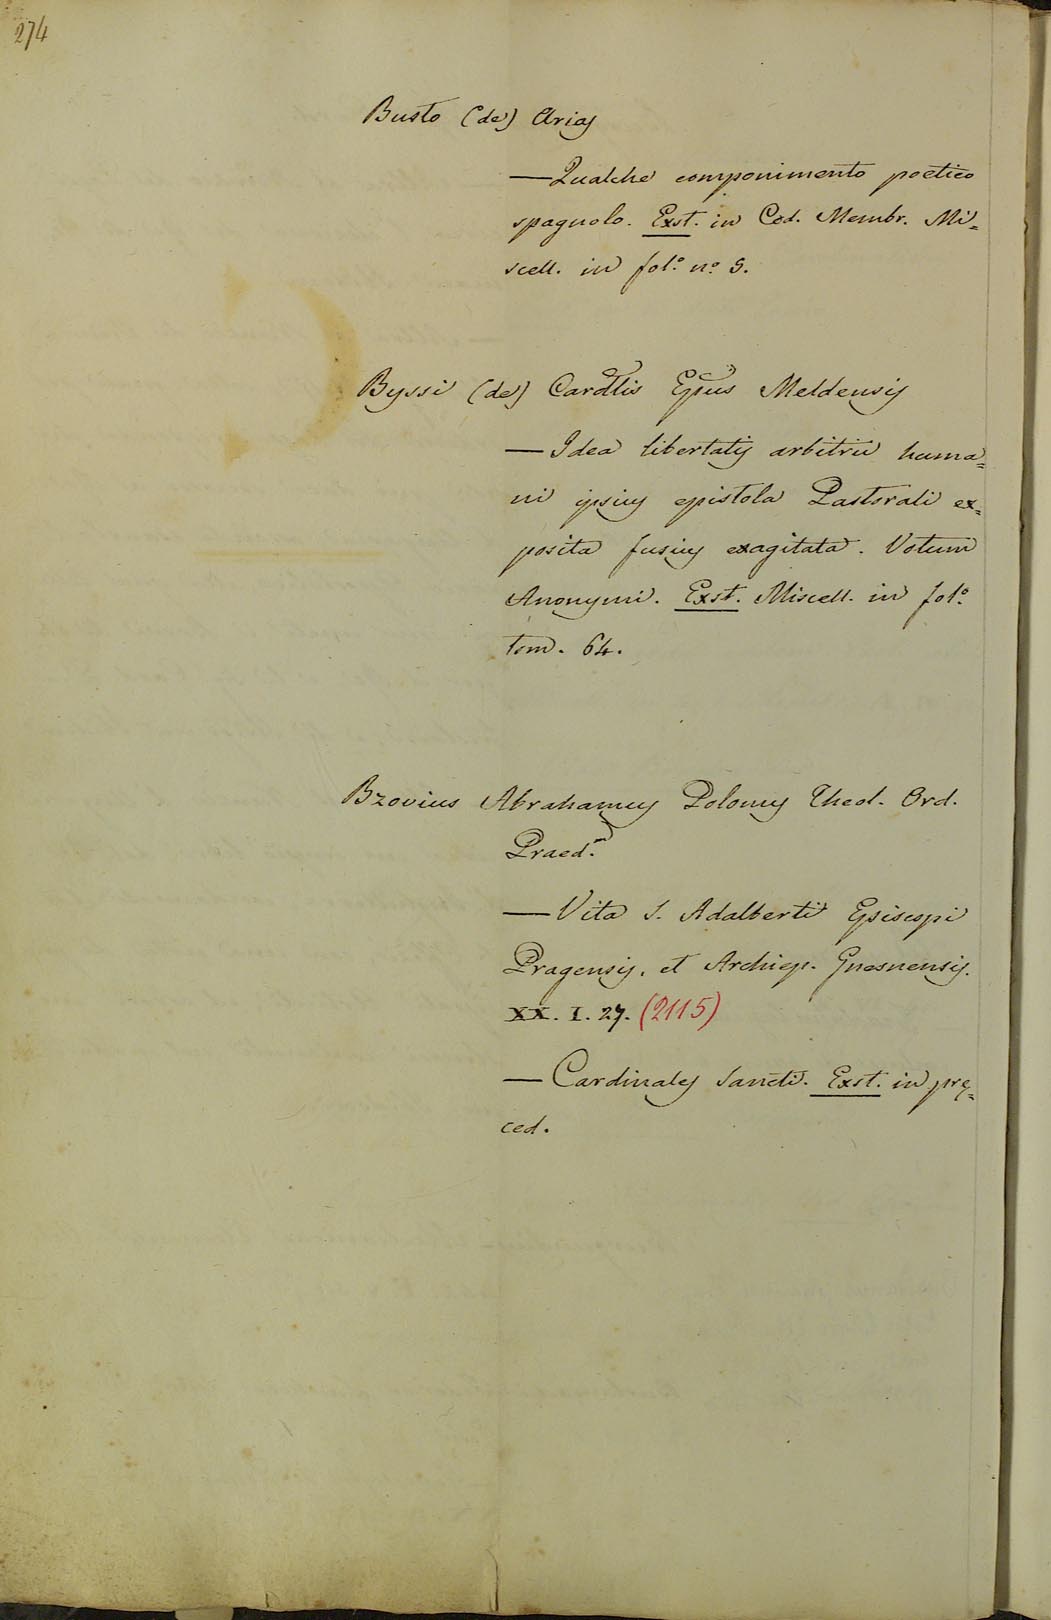 274
Busto (de) Arias
— Qualche componimento poetico
spagnolo. Exst. in Cod. Membr. Mi=
scell. in fol.º n.º 5.
Byssi (de) Cardlis Epus Meldensis
— Idea libertatis arbitrii huma=
ni ipsius epistola Pastorali ex=
posita fusius exagitata. Votum
Anonymi. Exst. Miscell. in fol.º
tom. 64.
Bzovius Abrahamus Polonus Theol. Ord.
Praed.
— Vita S. Adalberti Episcopi
Pragensis, et Archiep. Gnesnensis.
XX. I. 27. (2115)
— Cardinales Sancti. Exst. in prę=
ced.